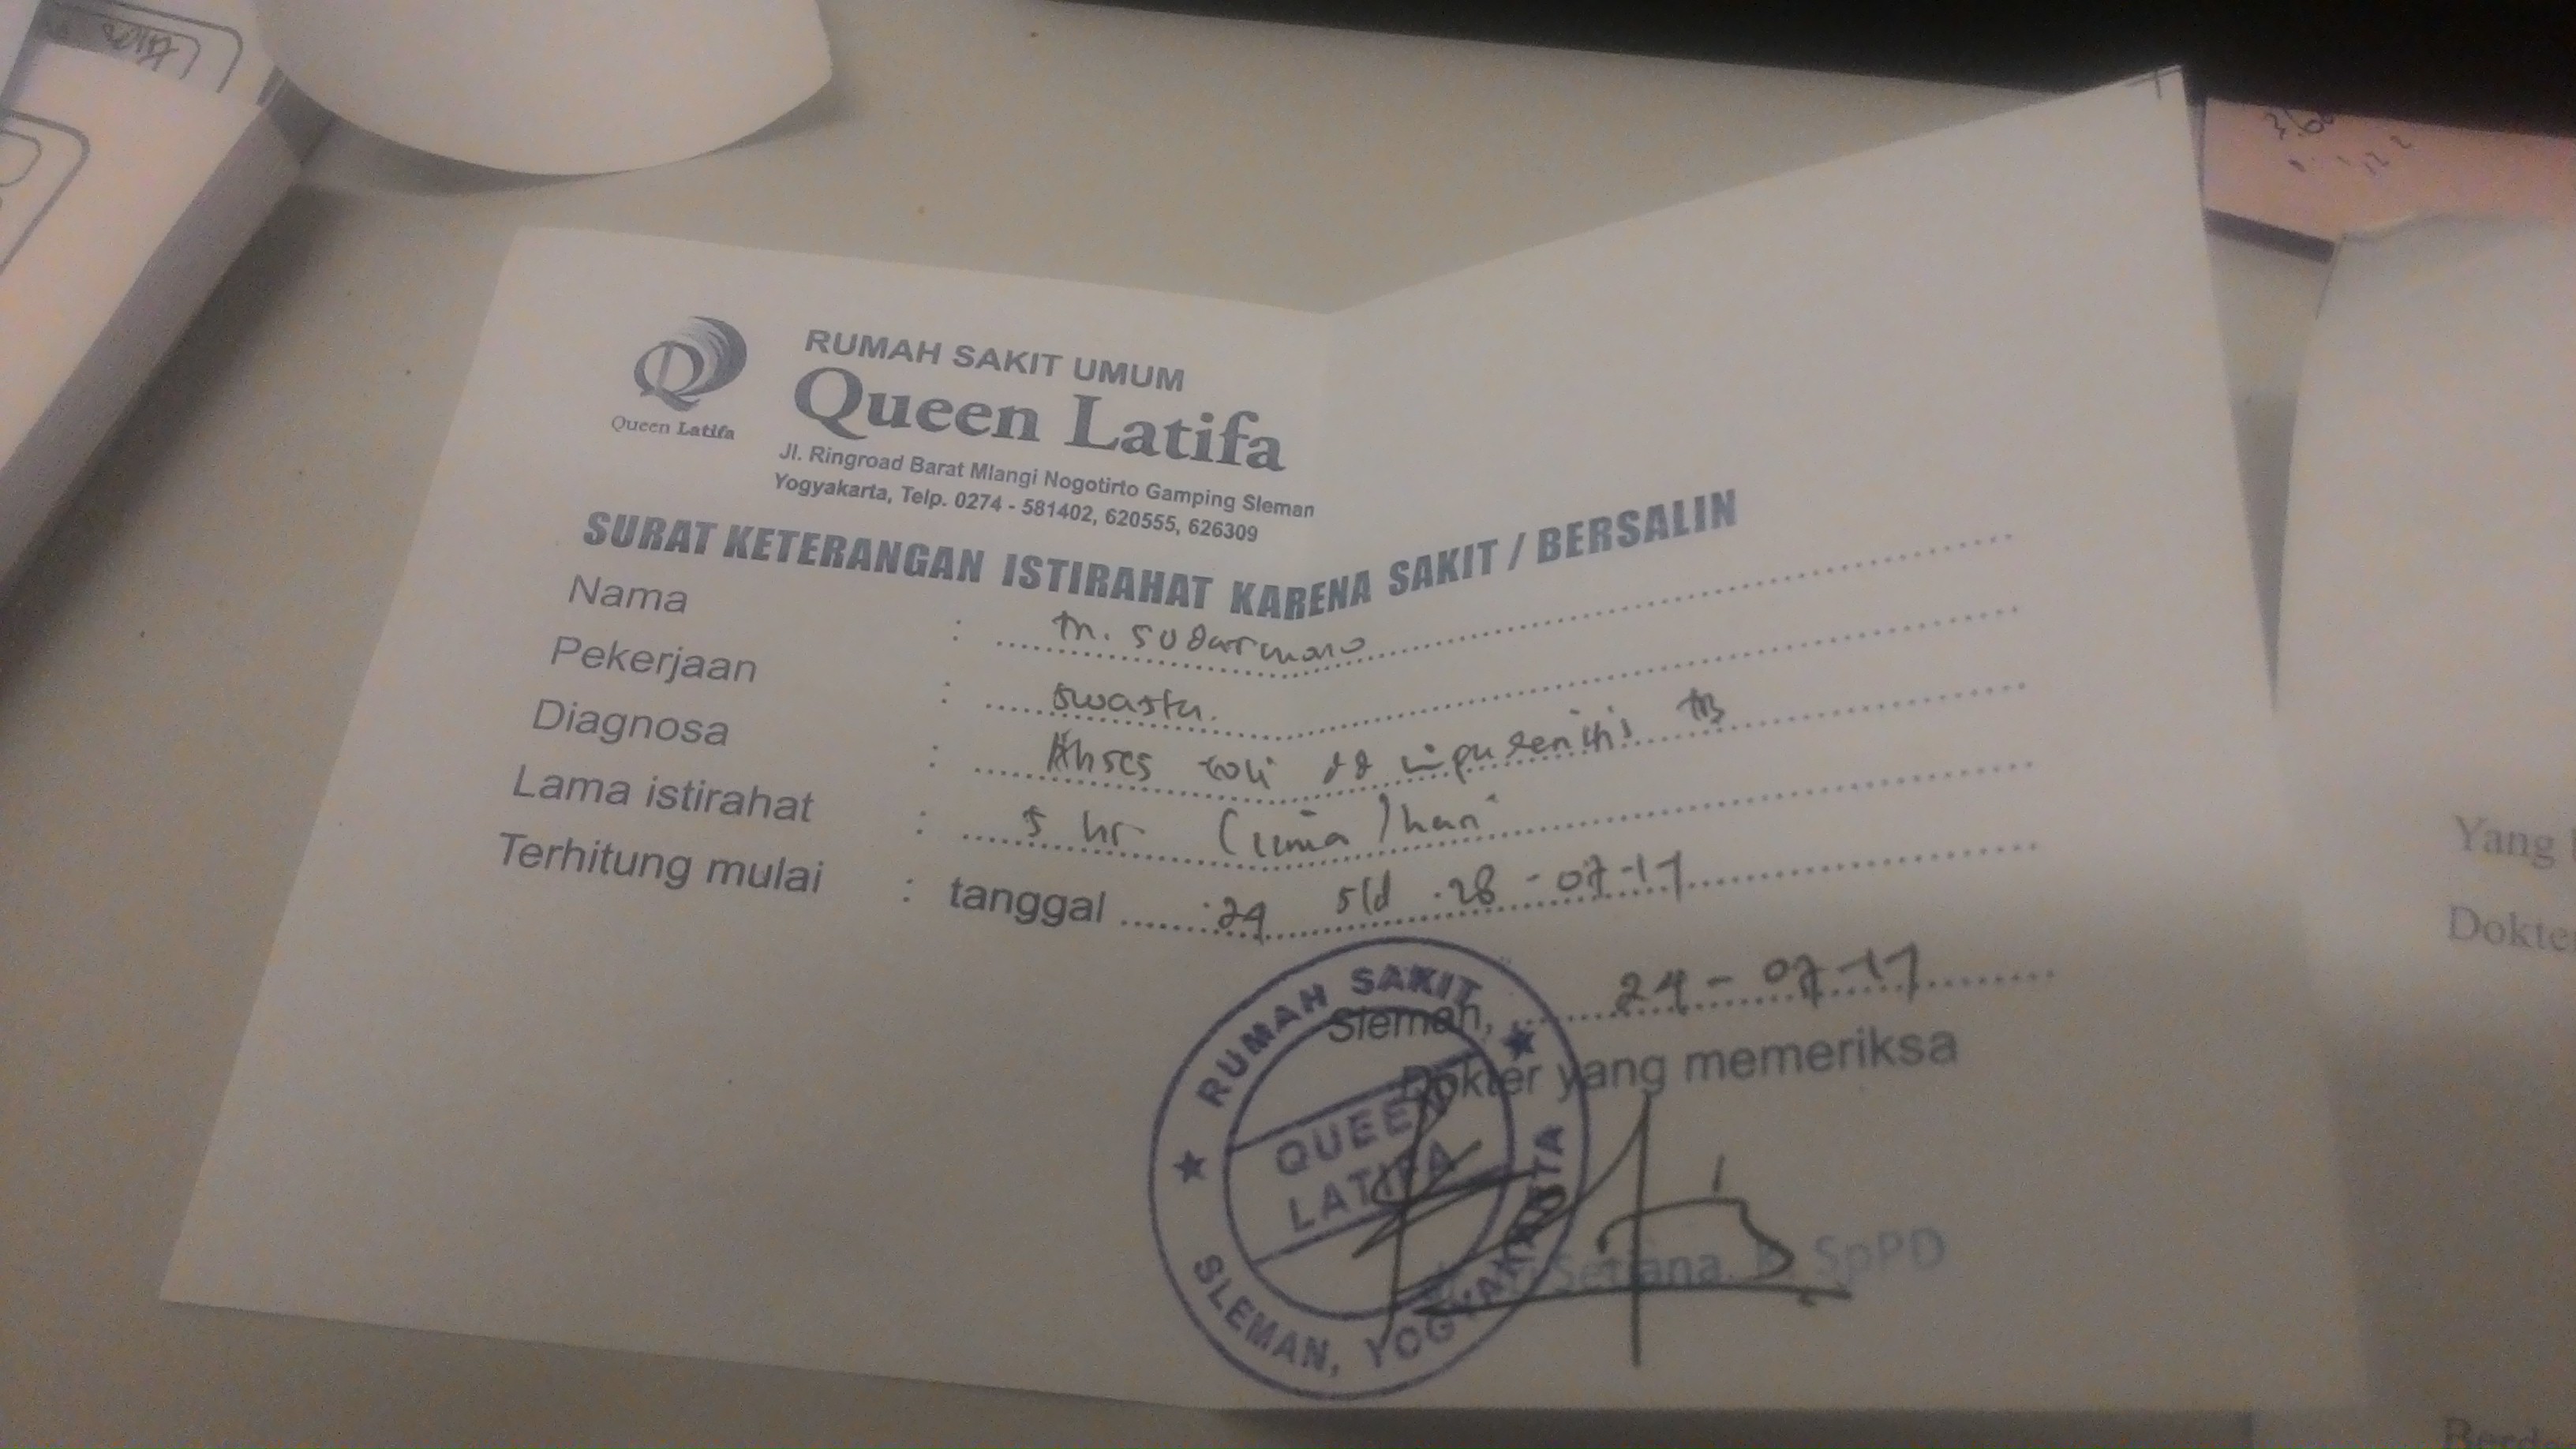 RUMAH SAKIT UMUM
Queen Latifa
Queen Latifa
Jl. Ringroad Barat Mlangi Nogotirto Gamping Sleman
Yogyakarta, Telp. 0274 - 581402, 620555, 626309
SURAT KETERANGAN ISTIRAHAT KARENA SAKIT / BERSALIN
Nama : tn. sudarmono
Pekerjaan : swasta.
Diagnosa :
Lama istirahat : 5 hr (lima) hari
Terhitung mulai : tanggal 24 s/d 28-07-17
Sleman, 24-07-17
Dokter yang memeriksa
SpPD
RUMAH SAKIT
QUEEN
LATIFA
SLEMAN, YOGYAKARTA
Yang
Dokte